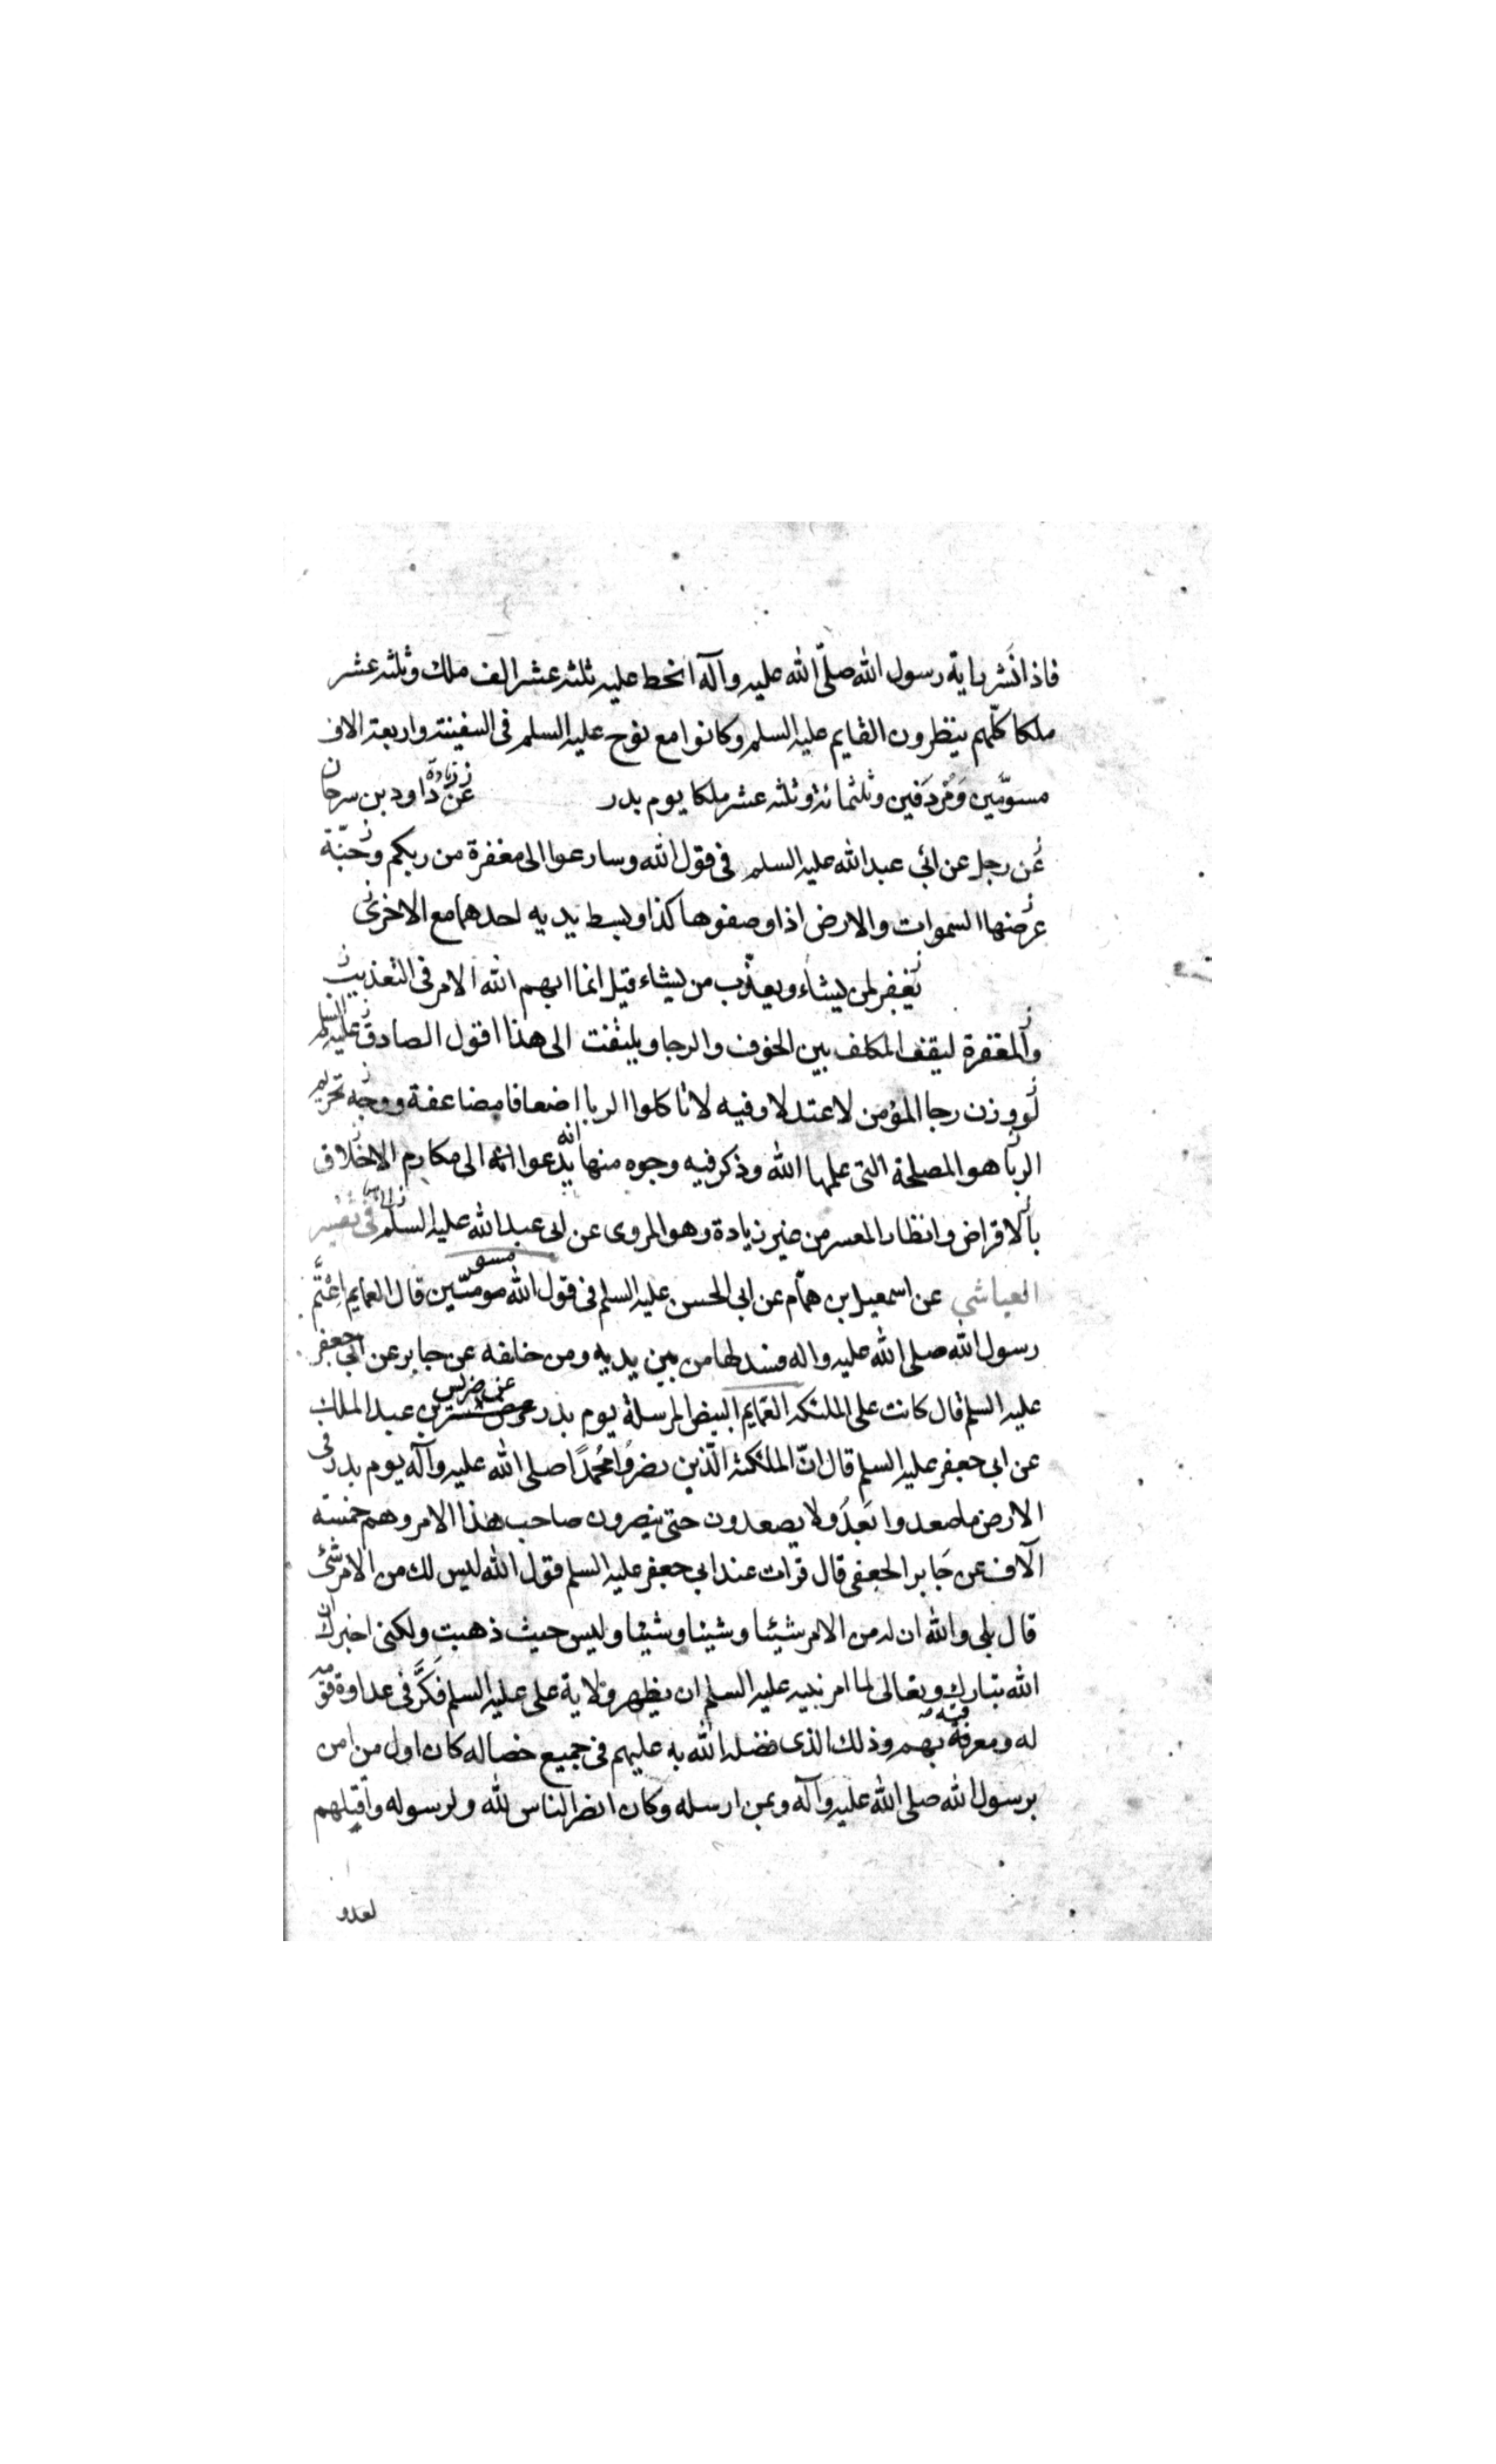 فاذا نَشر راية رسول الله صلّى الله عليه وآله انحط عليه ثلثة عشر الف ملك وثلثة عشر
ملكا كلّهم ينظرون القايم عليه السلم وكانوا مع نوح عليه السلم فى السفينة واربعة الاف
مسوّمين وَمُردَفين وثلثمائة وثلثه عشر ملكا يوم بدر زيادة عن داود بن سرحان
عن رجل عن ابى عبد الله عليه السلم فى قول الله وسارعوا الى مغفرة من ربكم وجنّة
عرضها السموات والارض اذا وصفوها كذا وبسط يديه احدهما مع الاخرى
يغفر لمن يشاء ويعذّب من يشاء قيل انما ابهم الله الامر فى التعذيب
والمغفرة ليقف المكلف بين الخوف والرجا ويلتفت الى هذا قول الصادق عليه السلم
لو وزن رجا المؤمن لاعتدلا وفيه لا تاكلوا الربا اضعافا مضاعفة ووجه تحريم
الربا هو المصلحة التى علمها الله وذكر فيه وجوه منها انه يدعوا الى مكارم الاخلاق
بالاقراض وانظار المعسر من غير زيادة وهو المروى عن ابى عبد الله عليه السلم فى تفسير
العياشي عن اسمعيل بن همّام عن ابى الحسن عليه السلم فى قول الله مسومّين قال العمايم اعْتَمّ
رسول الله صلى الله عليه واله فسدلها من بين يديه ومن خلفه عن جابر عن ابى جعفر
عليه السلم قال كانت على الملئكه العمايم البيض المرسلة يوم بدر عن ضريس بن عبد الملك
عن ابى جعفر عليه السلم قال انّ الملئكة الّذين نصرُوا محُمدًا صلى الله عليه وآله يوم بدر فى
الارض ما صعدوا بَعدُ ولا يصعدون حتى ينصرون صاحب هذا الامر وهم خمسة
آلاف عن جَابر الجعفى قال قرات عند ابى جعفر عليه السلم قول الله ليس لك من الامر شئ
قال بلى والله ان له من الامر شيئا وشيئا وشيئا وليس حيث ذهبت ولكنى اخبرك ان
الله تبارك وتعالى لما امر نبيه عليه السلم ان يظهر ولاية على عليه السلم فكَّر فى عداوة قومه
له ومعرفته بهم وذلك الذى فضله الله به عليهم فى جميع خصاله كان اول من امن
برسول الله صلى الله عليه وآله وبمن ارسله وكان انصر الناس لله ولرسوله واقتلهم
لعدو